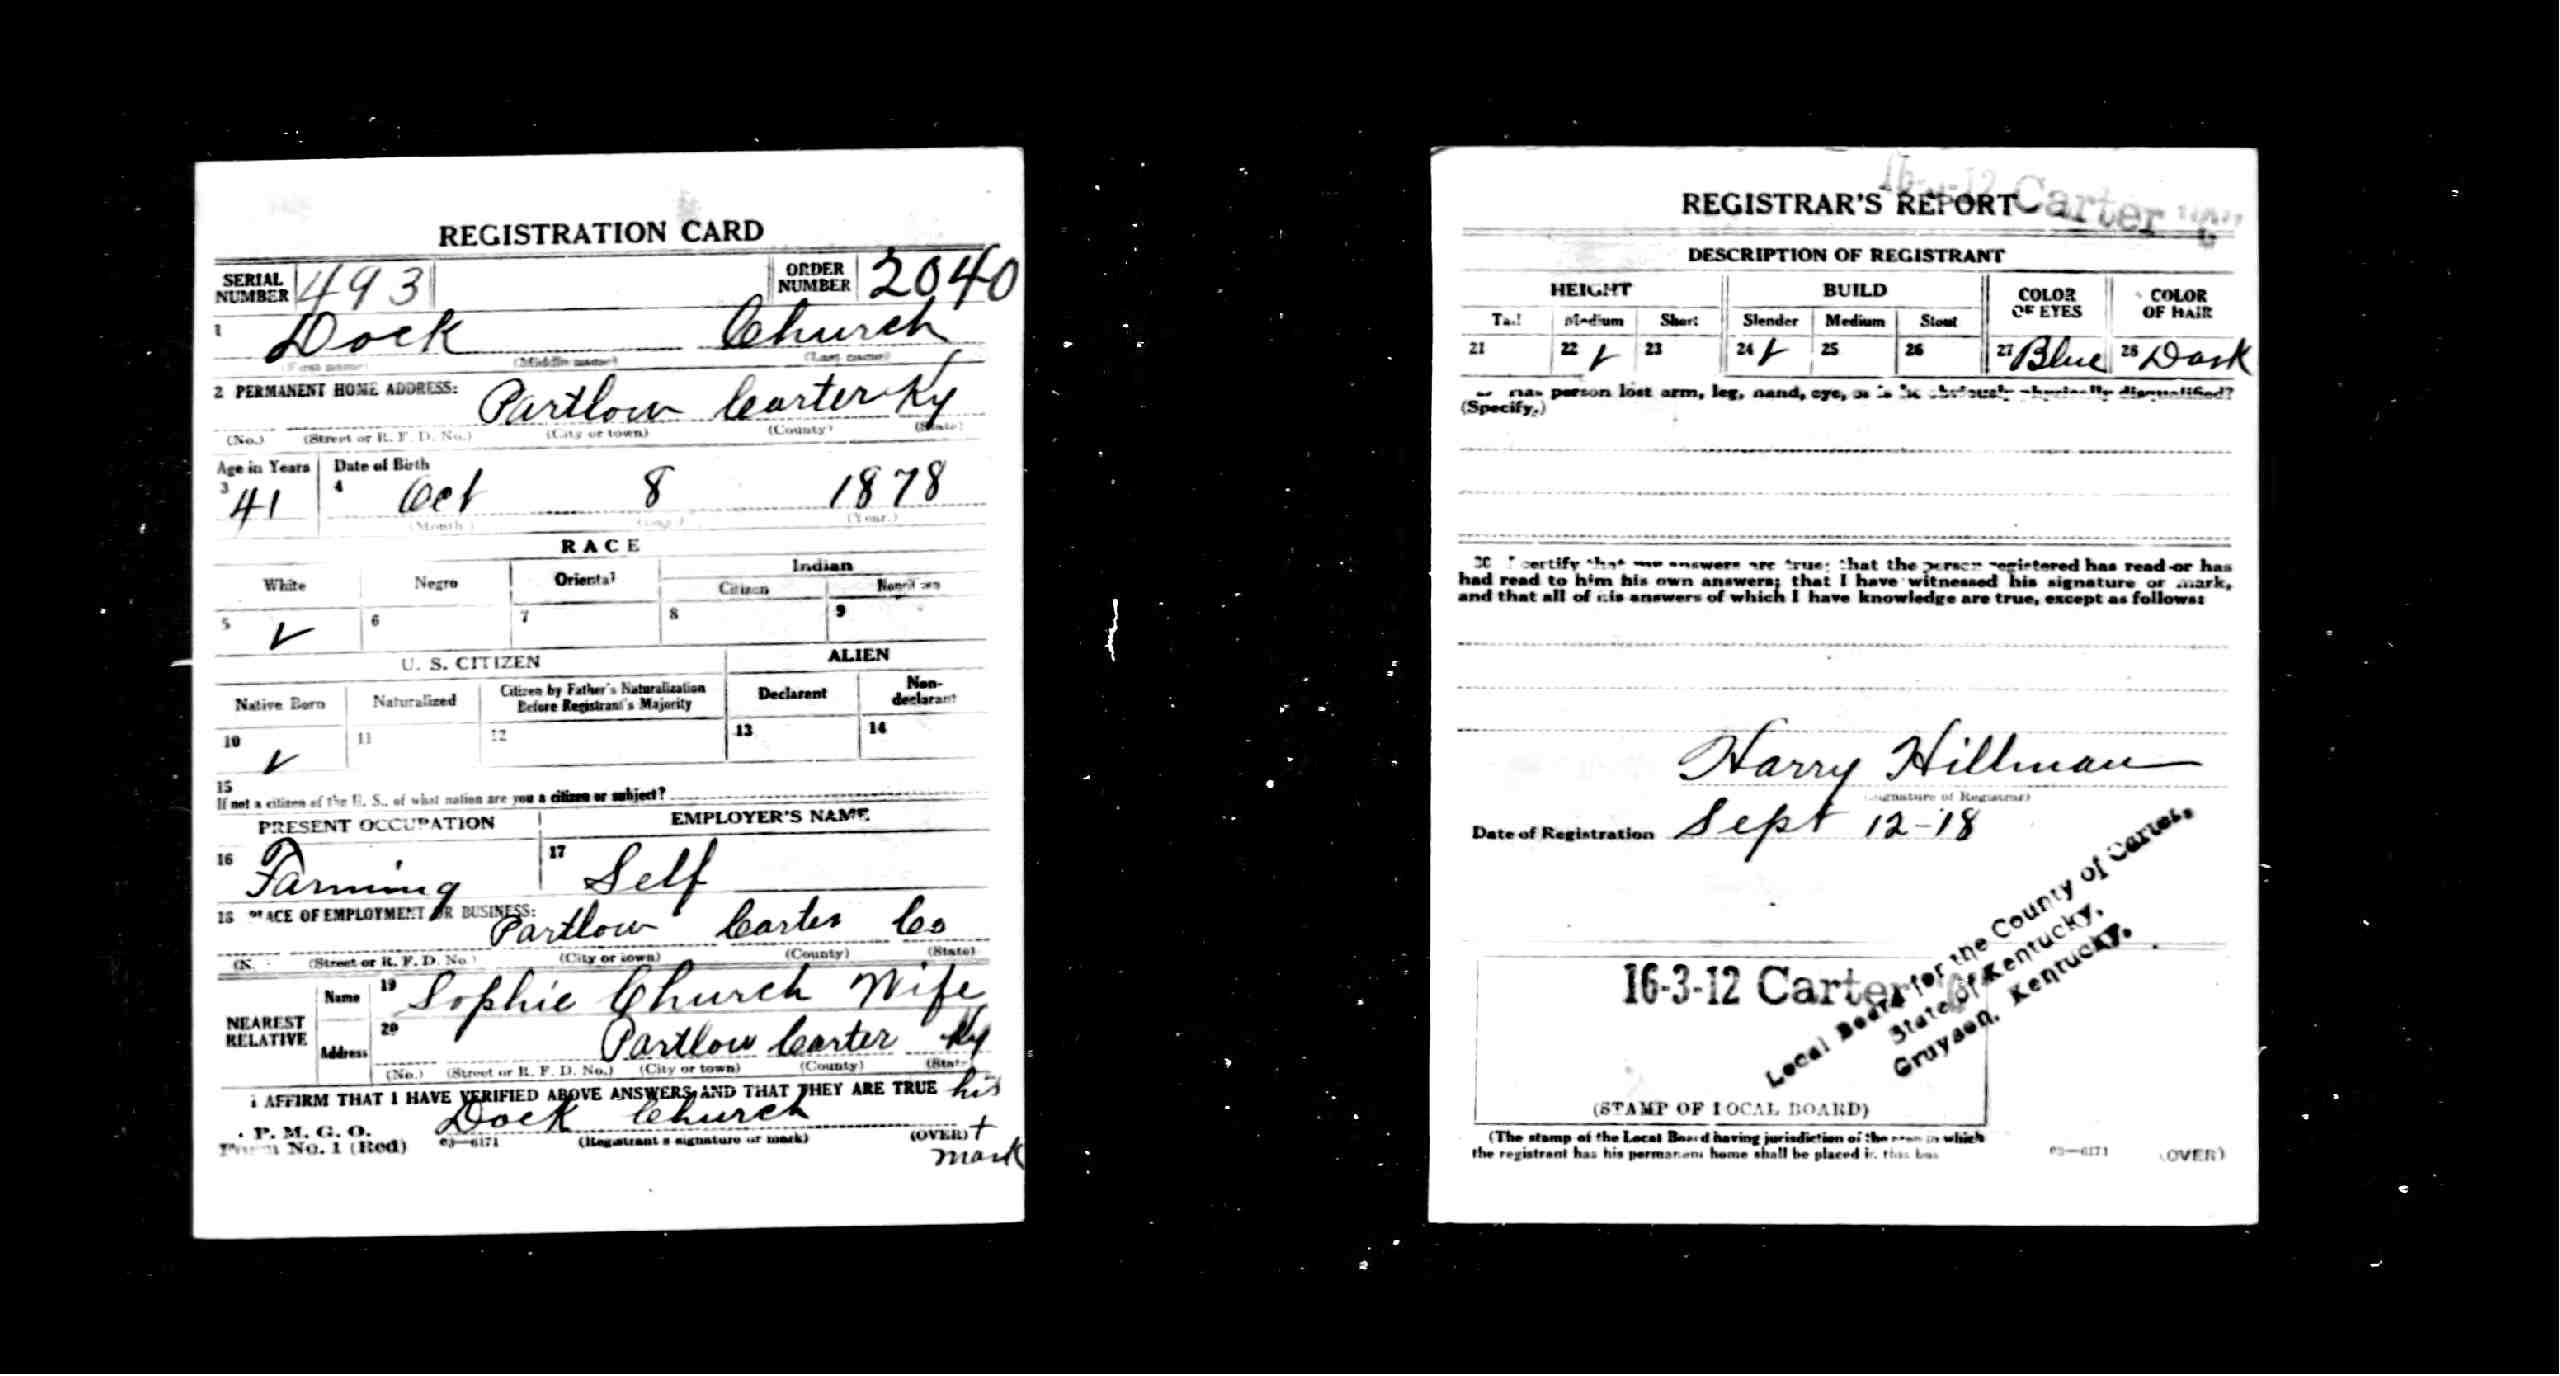 REGISTRATION CARD
SERIAL NUMBER 493 ORDER NUMBER 2040
1 Dock Church
(First name) (Middle name) (Last name)
2 PERMANENT HOME ADDRESS: Partlow Carter Ky
(No.) (Street or R. F. D. No.) (City or town) (County) (State)
Age in Years Date of Birth
3 41 4 Oct 8 1878
(Month.) (Day.) (Year.)
RACE
White Negro Oriental Indian
Citizen Noncitizen
5 ✓ 6 7 8 9
U. S. CITIZEN ALIEN
Native Born Naturalized Citizen by Father's Naturalization Before Registrant's Majority Declarant Non-declarant
10 ✓ 11 12 13 14
15
If not a citizen of the U. S., of what nation are you a citizen or subject?
PRESENT OCCUPATION EMPLOYER'S NAME
16 Farming 17 Self
18 PLACE OF EMPLOYMENT OR BUSINESS:
Partlow Carter Co
(Street or R. F. D. No.) (City or town) (County) (State)
NEAREST RELATIVE
Name 19 Sophie Church Wife
Address 20 Partlow Carter Ky
(No.) (Street or R. F. D. No.) (City or town) (County) (State)
I AFFIRM THAT I HAVE VERIFIED ABOVE ANSWERS AND THAT THEY ARE TRUE his
Dock Church
P. M. G. O.
Form No. 1 (Red) 03—6171 (Registrant's signature or mark) (OVER) +
mark
16-3-12 Carter
REGISTRAR'S REPORT
DESCRIPTION OF REGISTRANT
HEIGHT BUILD COLOR OF EYES COLOR OF HAIR
Tall Medium Short Slender Medium Stout
21 22 ✓ 23 24 ✓ 25 26 27 Blue 28 Dark
has person lost arm, leg, hand, eye, or is he obviously physically disqualified?
(Specify.)
30 I certify that my answers are true; that the person registered has read or has
had read to him his own answers; that I have witnessed his signature or mark,
and that all of his answers of which I have knowledge are true, except as follows:
Harry Hillman
(Signature of Registrar)
Date of Registration Sept 12-18
Local Board for the County of Carter,
State of Kentucky,
Gruyson, Kentucky.
16-3-12 Carter
(STAMP OF LOCAL BOARD)
(The stamp of the Local Board having jurisdiction of the area in which
the registrant has his permanent home shall be placed in this box
03—6171 (OVER)